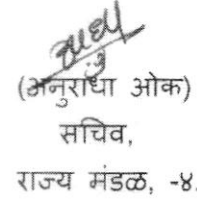 (अनुराधा ओक)
सचिव,
राज्य मंडळ, -४.